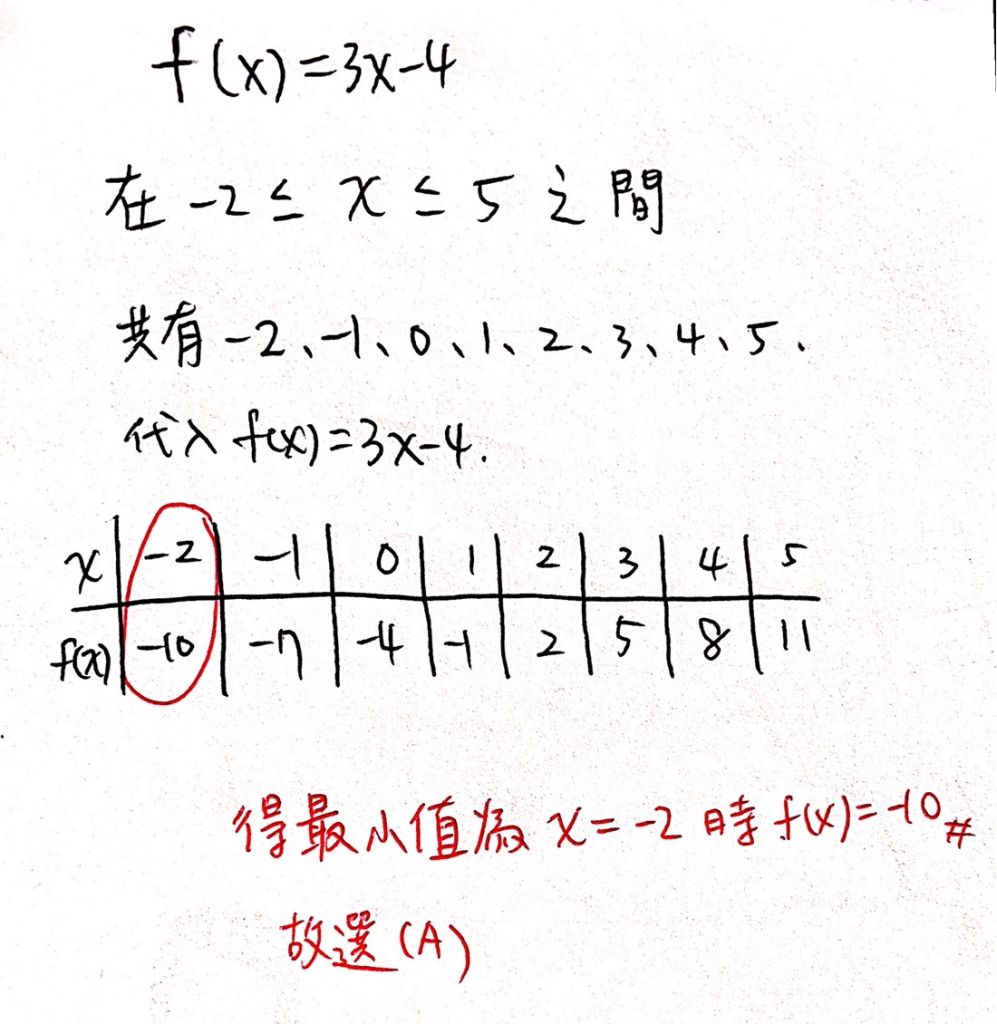 f(x)=3x-4
在 -2 ≤ x ≤ 5 之間
共有 -2、-1、0、1、2、3、4、5.
代入 f(x)=3x-4.
x | -2 | -1 | 0 | 1 | 2 | 3 | 4 | 5
f(x) | -10 | -7 | -4 | -1 | 2 | 5 | 8 | 11
得最小值為 x=-2 時 f(x)=-10 #
故選(A)